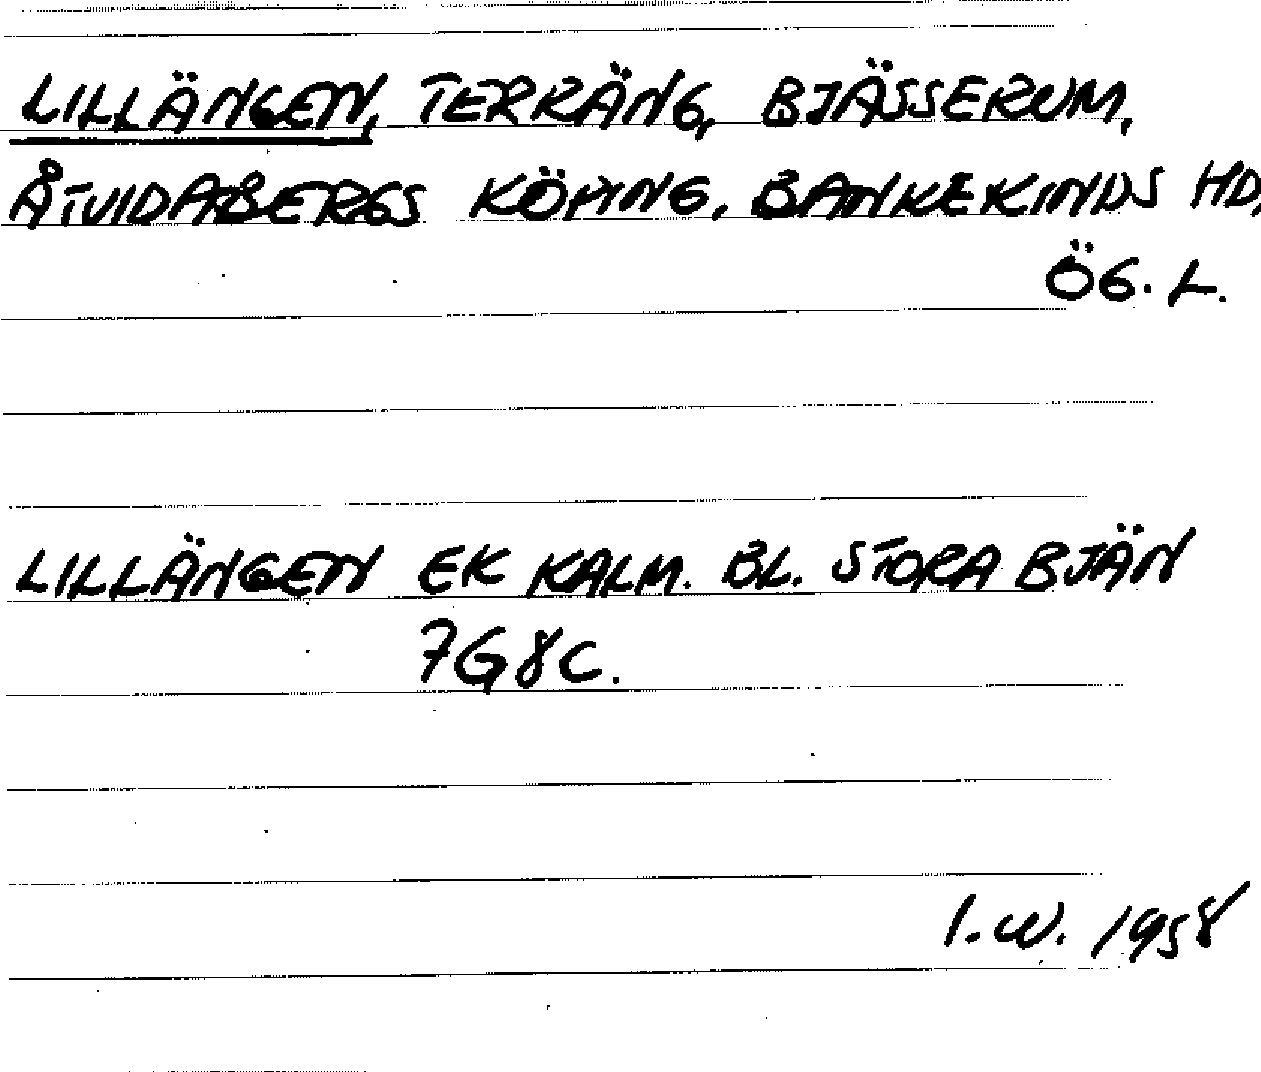 LILLÄNGEN, TERRÄNG, BJÄSSERUM,
ÅTVIDABERGS KÖPING, BANKEKINDS HD,
ÖG. L.
LILLÄNGEN EK KALM. BL. STORA BJÄN
7G8C.
I.W. 1958